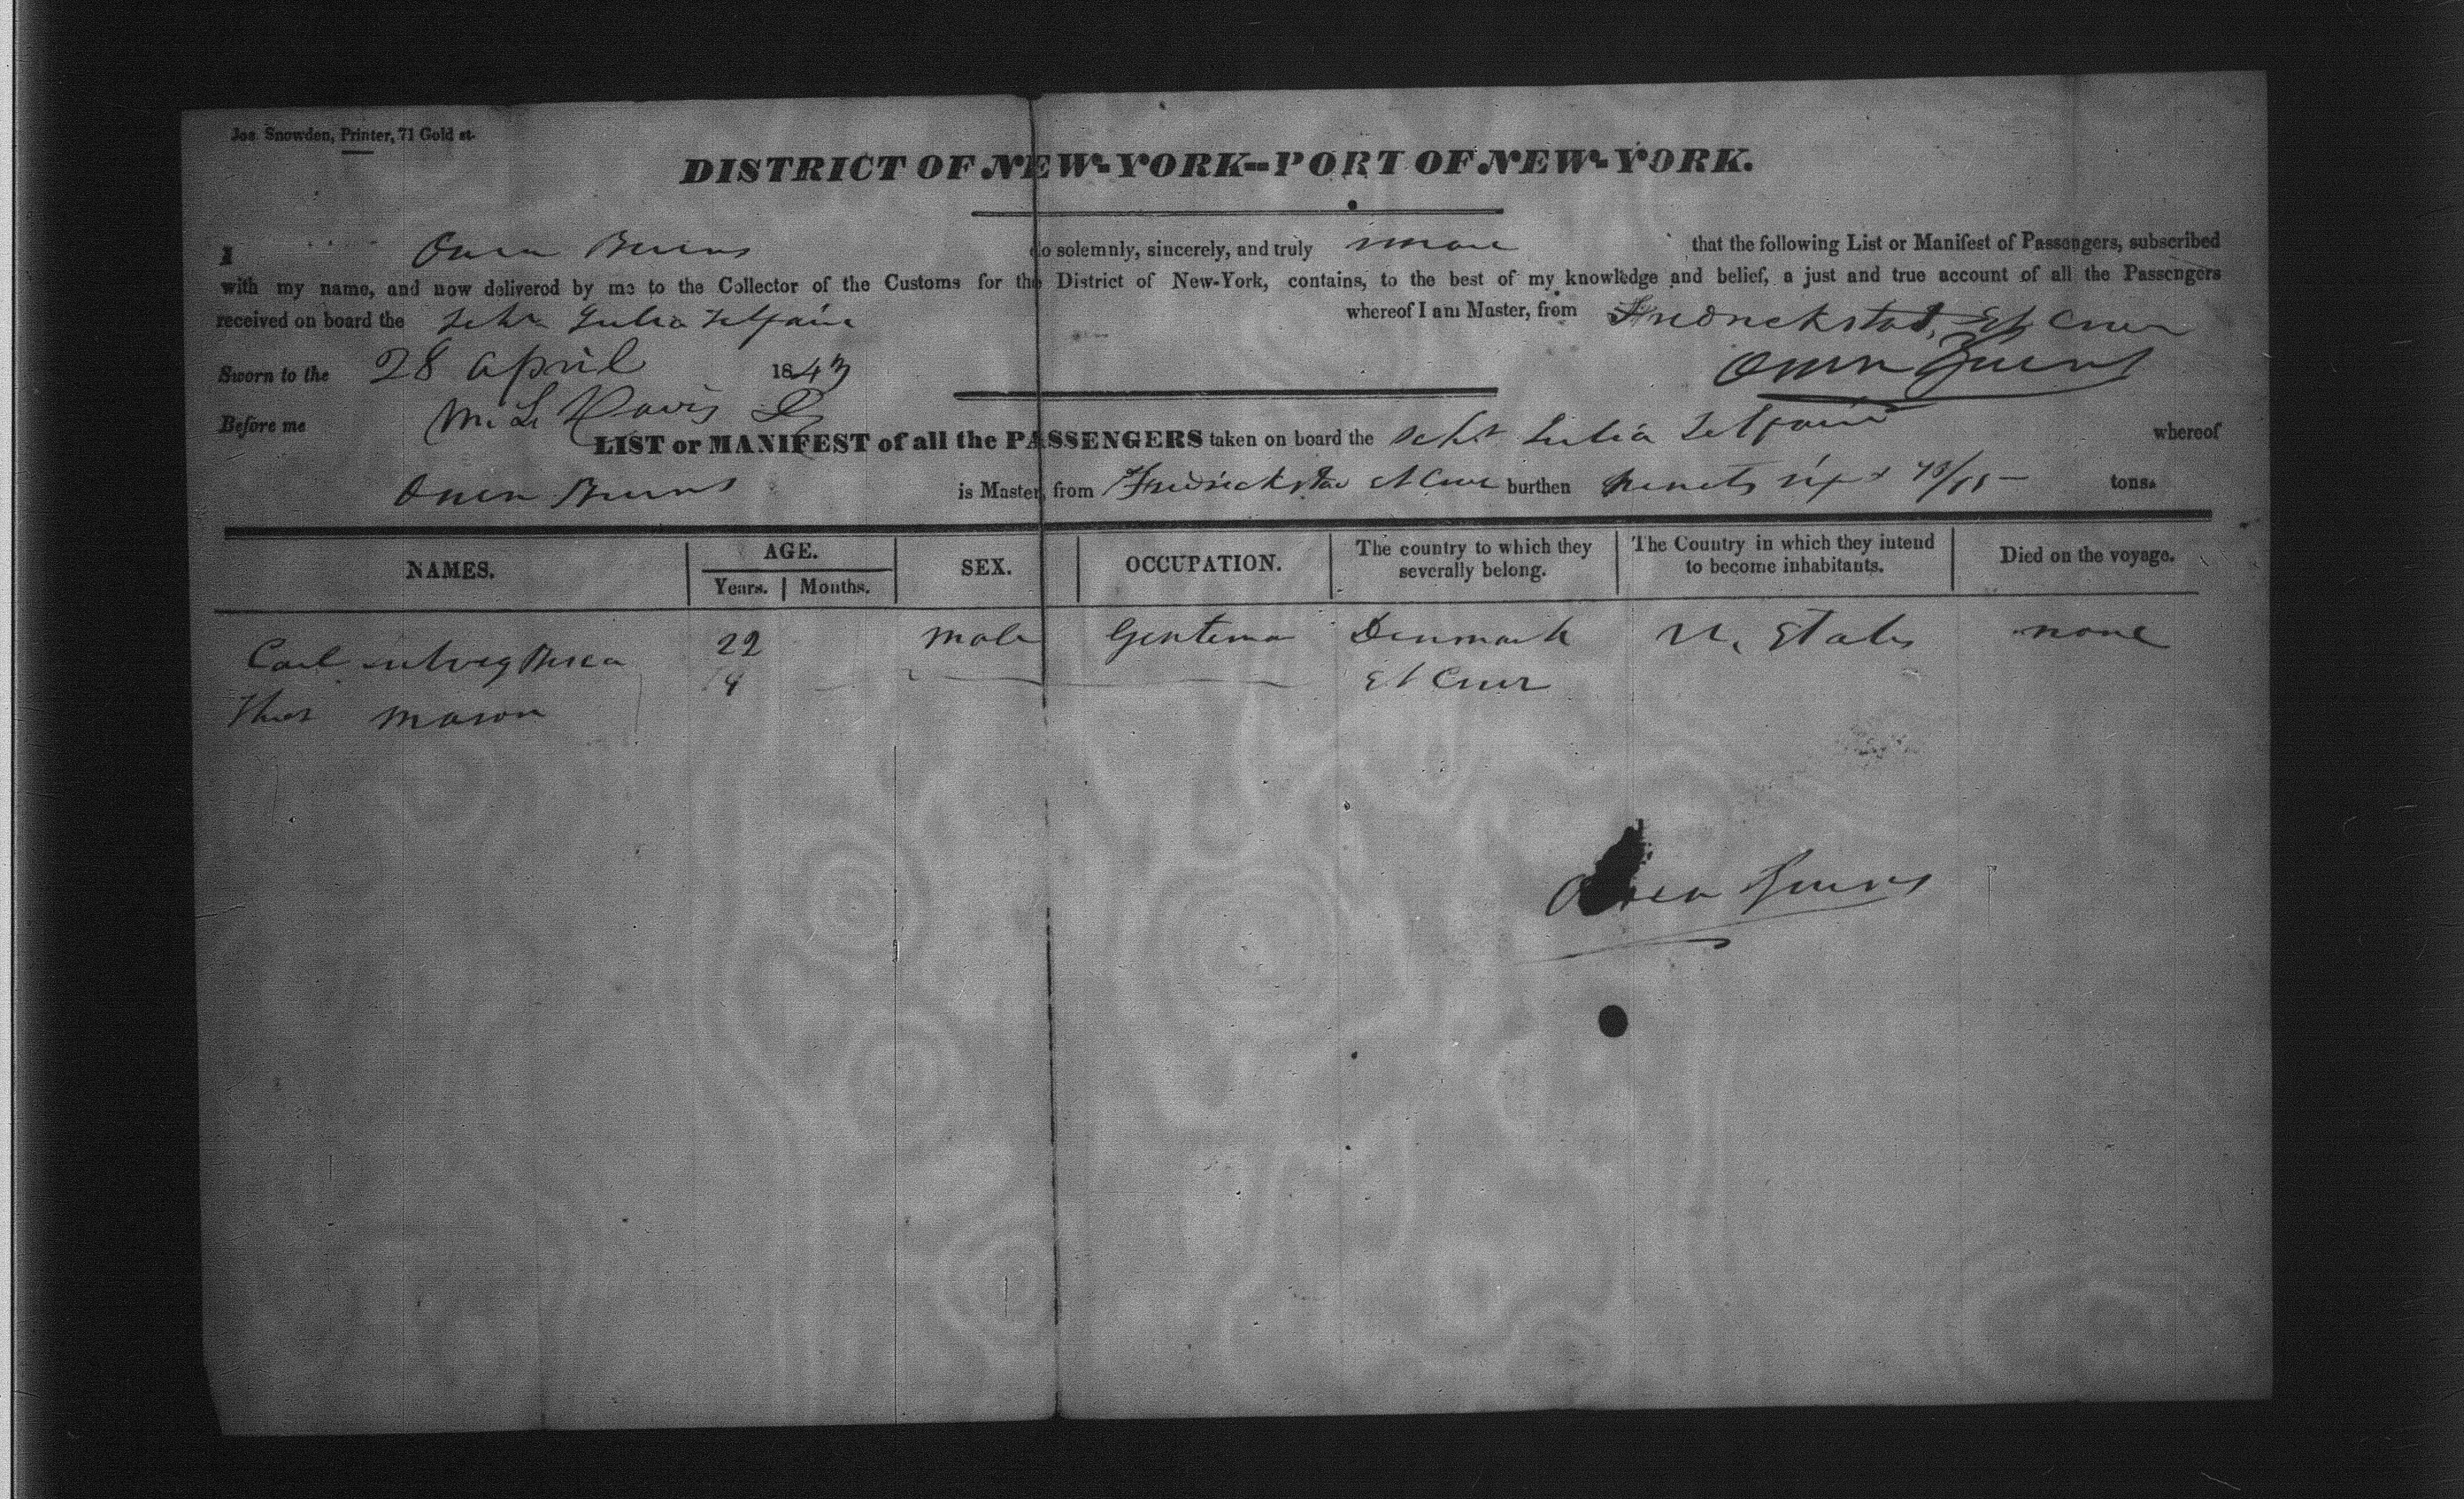 Jos. Snowden, Printer, 71 Gold st.
DISTRICT OF NEW-YORK--PORT OF NEW-YORK.
I Owen Burns do solemnly, sincerely, and truly swear that the following List or Manifest of Passengers, subscribed
with my name, and now delivered by me to the Collector of the Customs for the District of New-York, contains, to the best of my knowledge and belief, a just and true account of all the Passengers
received on board the Schr Julia Telfair whereof I am Master, from Fredrickstad, St Croix
Sworn to the 28 April 1843 Owen Burns
Before me M. L. Davis
LIST or MANIFEST of all the PASSENGERS taken on board the Schr Julia Telfair whereof
Owen Burns is Master, from Fredrickstad St Croix burthen ninety six tons.
NAMES. AGE. Years. Months. SEX. OCCUPATION. The country to which they severally belong. The Country in which they intend to become inhabitants. Died on the voyage.
Carl 22 Male Gentleman Denmark U. States none
Thos Mason St Croix
Owen Burns